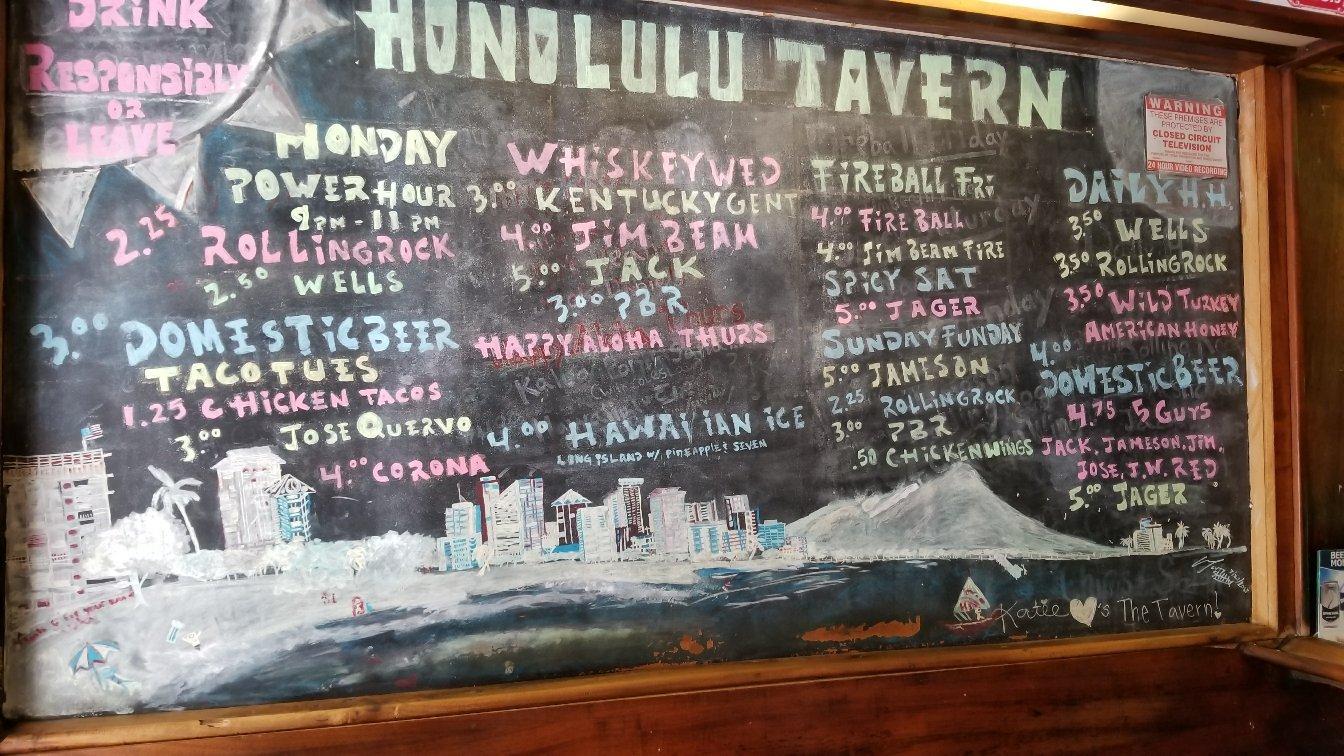 DRINK
RESPONSIBLY
OR
LEAVE
HONOLULU TAVERN
MONDAY
POWER HOUR
9PM - 11 PM
2.25 ROLLINGROCK
2.50 WELLS
3.00 DOMESTIC BEER
TACO TUES
1.25 CHICKEN TACOS
3.00 JOSE QUERVO
4.00 CORONA
WHISKEY WED
3.00 KENTUCKY GENT
4.00 JIM BEAM
5.00 JACK
3.00 PBR
HAPPY ALOHA THURS
4.00 HAWAIIAN ICE
LONG ISLAND W/ PINEAPPLE & SEVEN
FIREBALL FRI
4.00 FIRE BALL
4.00 JIM BEAM FIRE
SPICY SAT
5.00 JAGER
SUNDAY FUNDAY
5.00 JAMESON
2.25 ROLLINGROCK
3.00 PBR
.50 CHICKEN WINGS
DAILY H.H.
3.50 WELLS
3.50 ROLLINGROCK
3.50 WILD TURKEY
AMERICAN HONEY
4.00
DOMESTIC BEER
4.75 5 GUYS
JACK, JAMESON, JIM,
JOSE, J.W. RED
5.00 JAGER
Katie ♥'s The Tavern!
WARNING
THESE PREMISES ARE
PROTECTED BY
CLOSED CIRCUIT
TELEVISION
24 HOUR VIDEO RECORDING